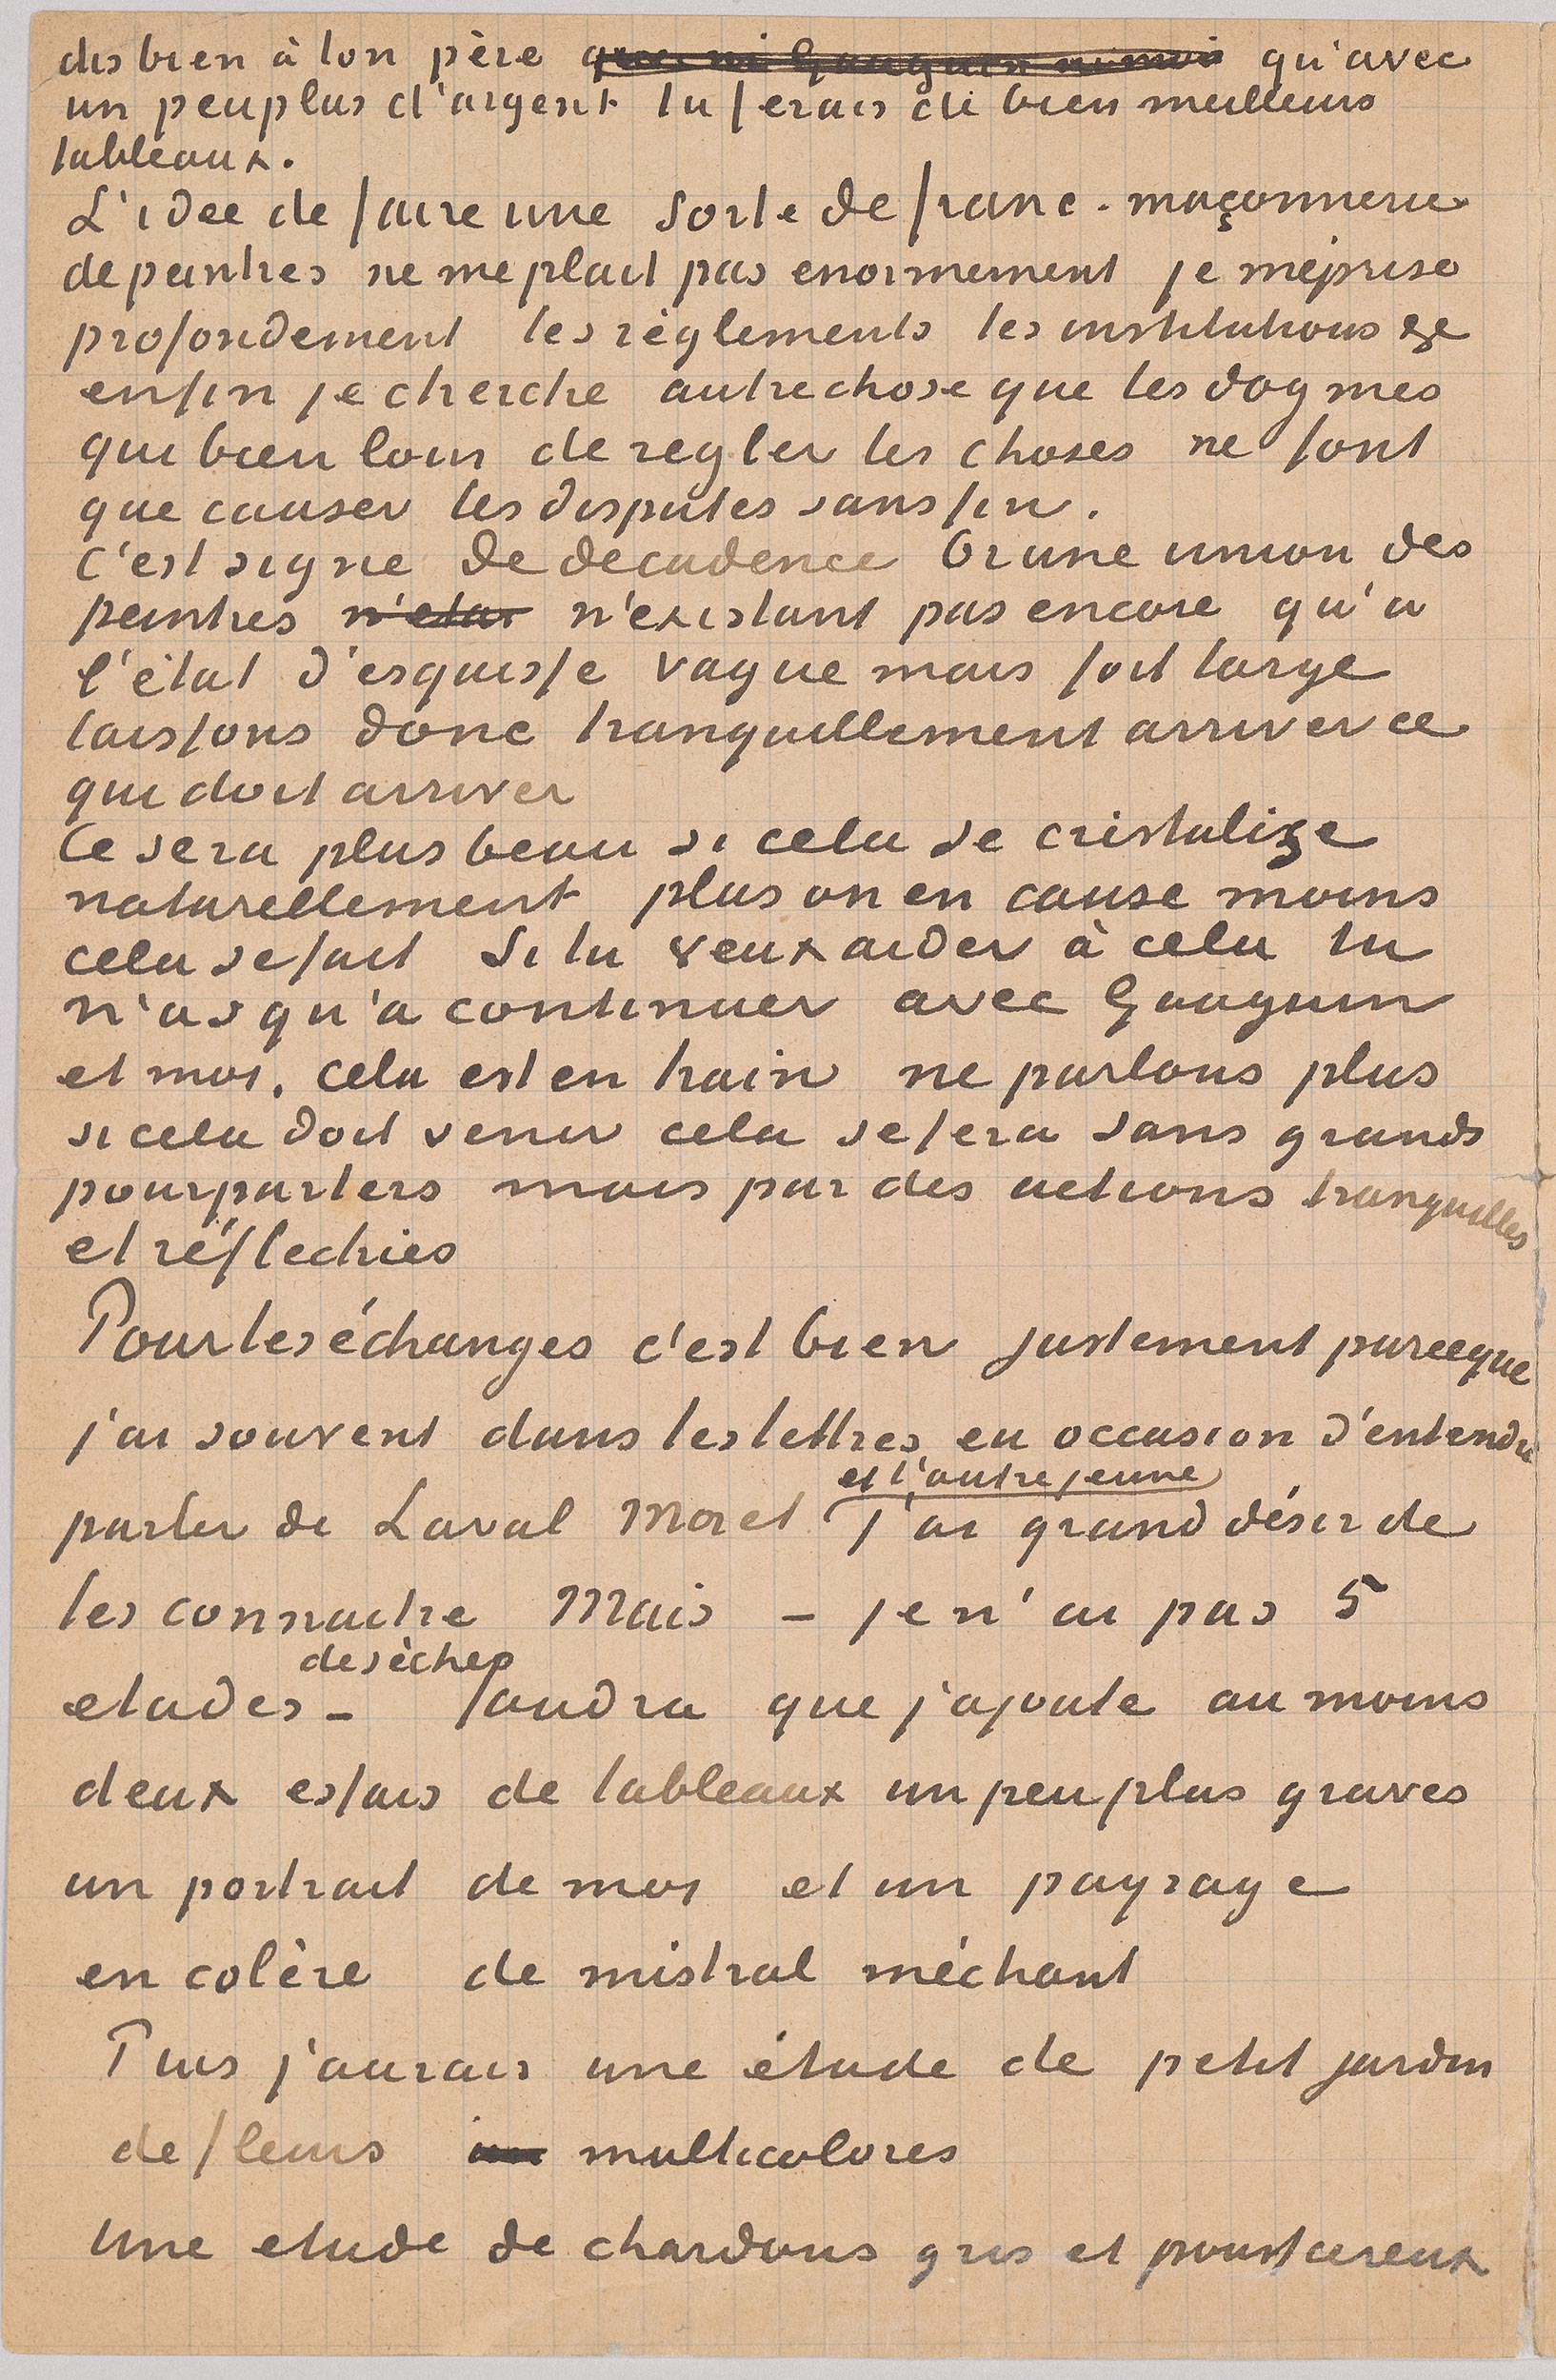 dis bien à ton père qu'avec
un peu plus d'argent tu ferais de bien meilleurs
tableaux.
L'idée de faire une sorte de franc-maçonnerie
de peintres ne me plait pas enormement je méprise
profondement les règlements les institutions &c
enfin je cherche autre chose que les dogmes
qui bien loin de regler les choses ne font
que causer les disputes sans fin.
C'est signe de decadence Or une union des
peintres n'etai n'existant pas encore qu'a
l'état d'esquisse vague mais fort large
laissons donc tranquillement arriver ce
qui doit arriver
Ce sera plus beau si cela se cristalize
naturellement plus on en cause moins
cela se fait Si tu veux aider à cela tu
n'as qu'a continuer avec Gauguin
et moi. Cela est en train ne parlons plus
si cela doit venir cela se fera sans grands
pourparlers mais par des actions tranquilles
et réflechies
Pour les échanges c'est bien justement parceque
j'ai souvent dans les lettres eu occasion d'entendre
et l'autre jeune
parler de Laval Moret J'ai grand désir de
les connaitre Mais – je n'ai pas 5
de sèches
etudes – faudra que j'ajoute au moins
deux essais de tableaux un peu plus graves
un portrait de moi et un paysage
en colère de mistral méchant
Puis j'aurais une étude de petit jardin
de fleurs multicolores
Une etude de chardons gris et poussiereux